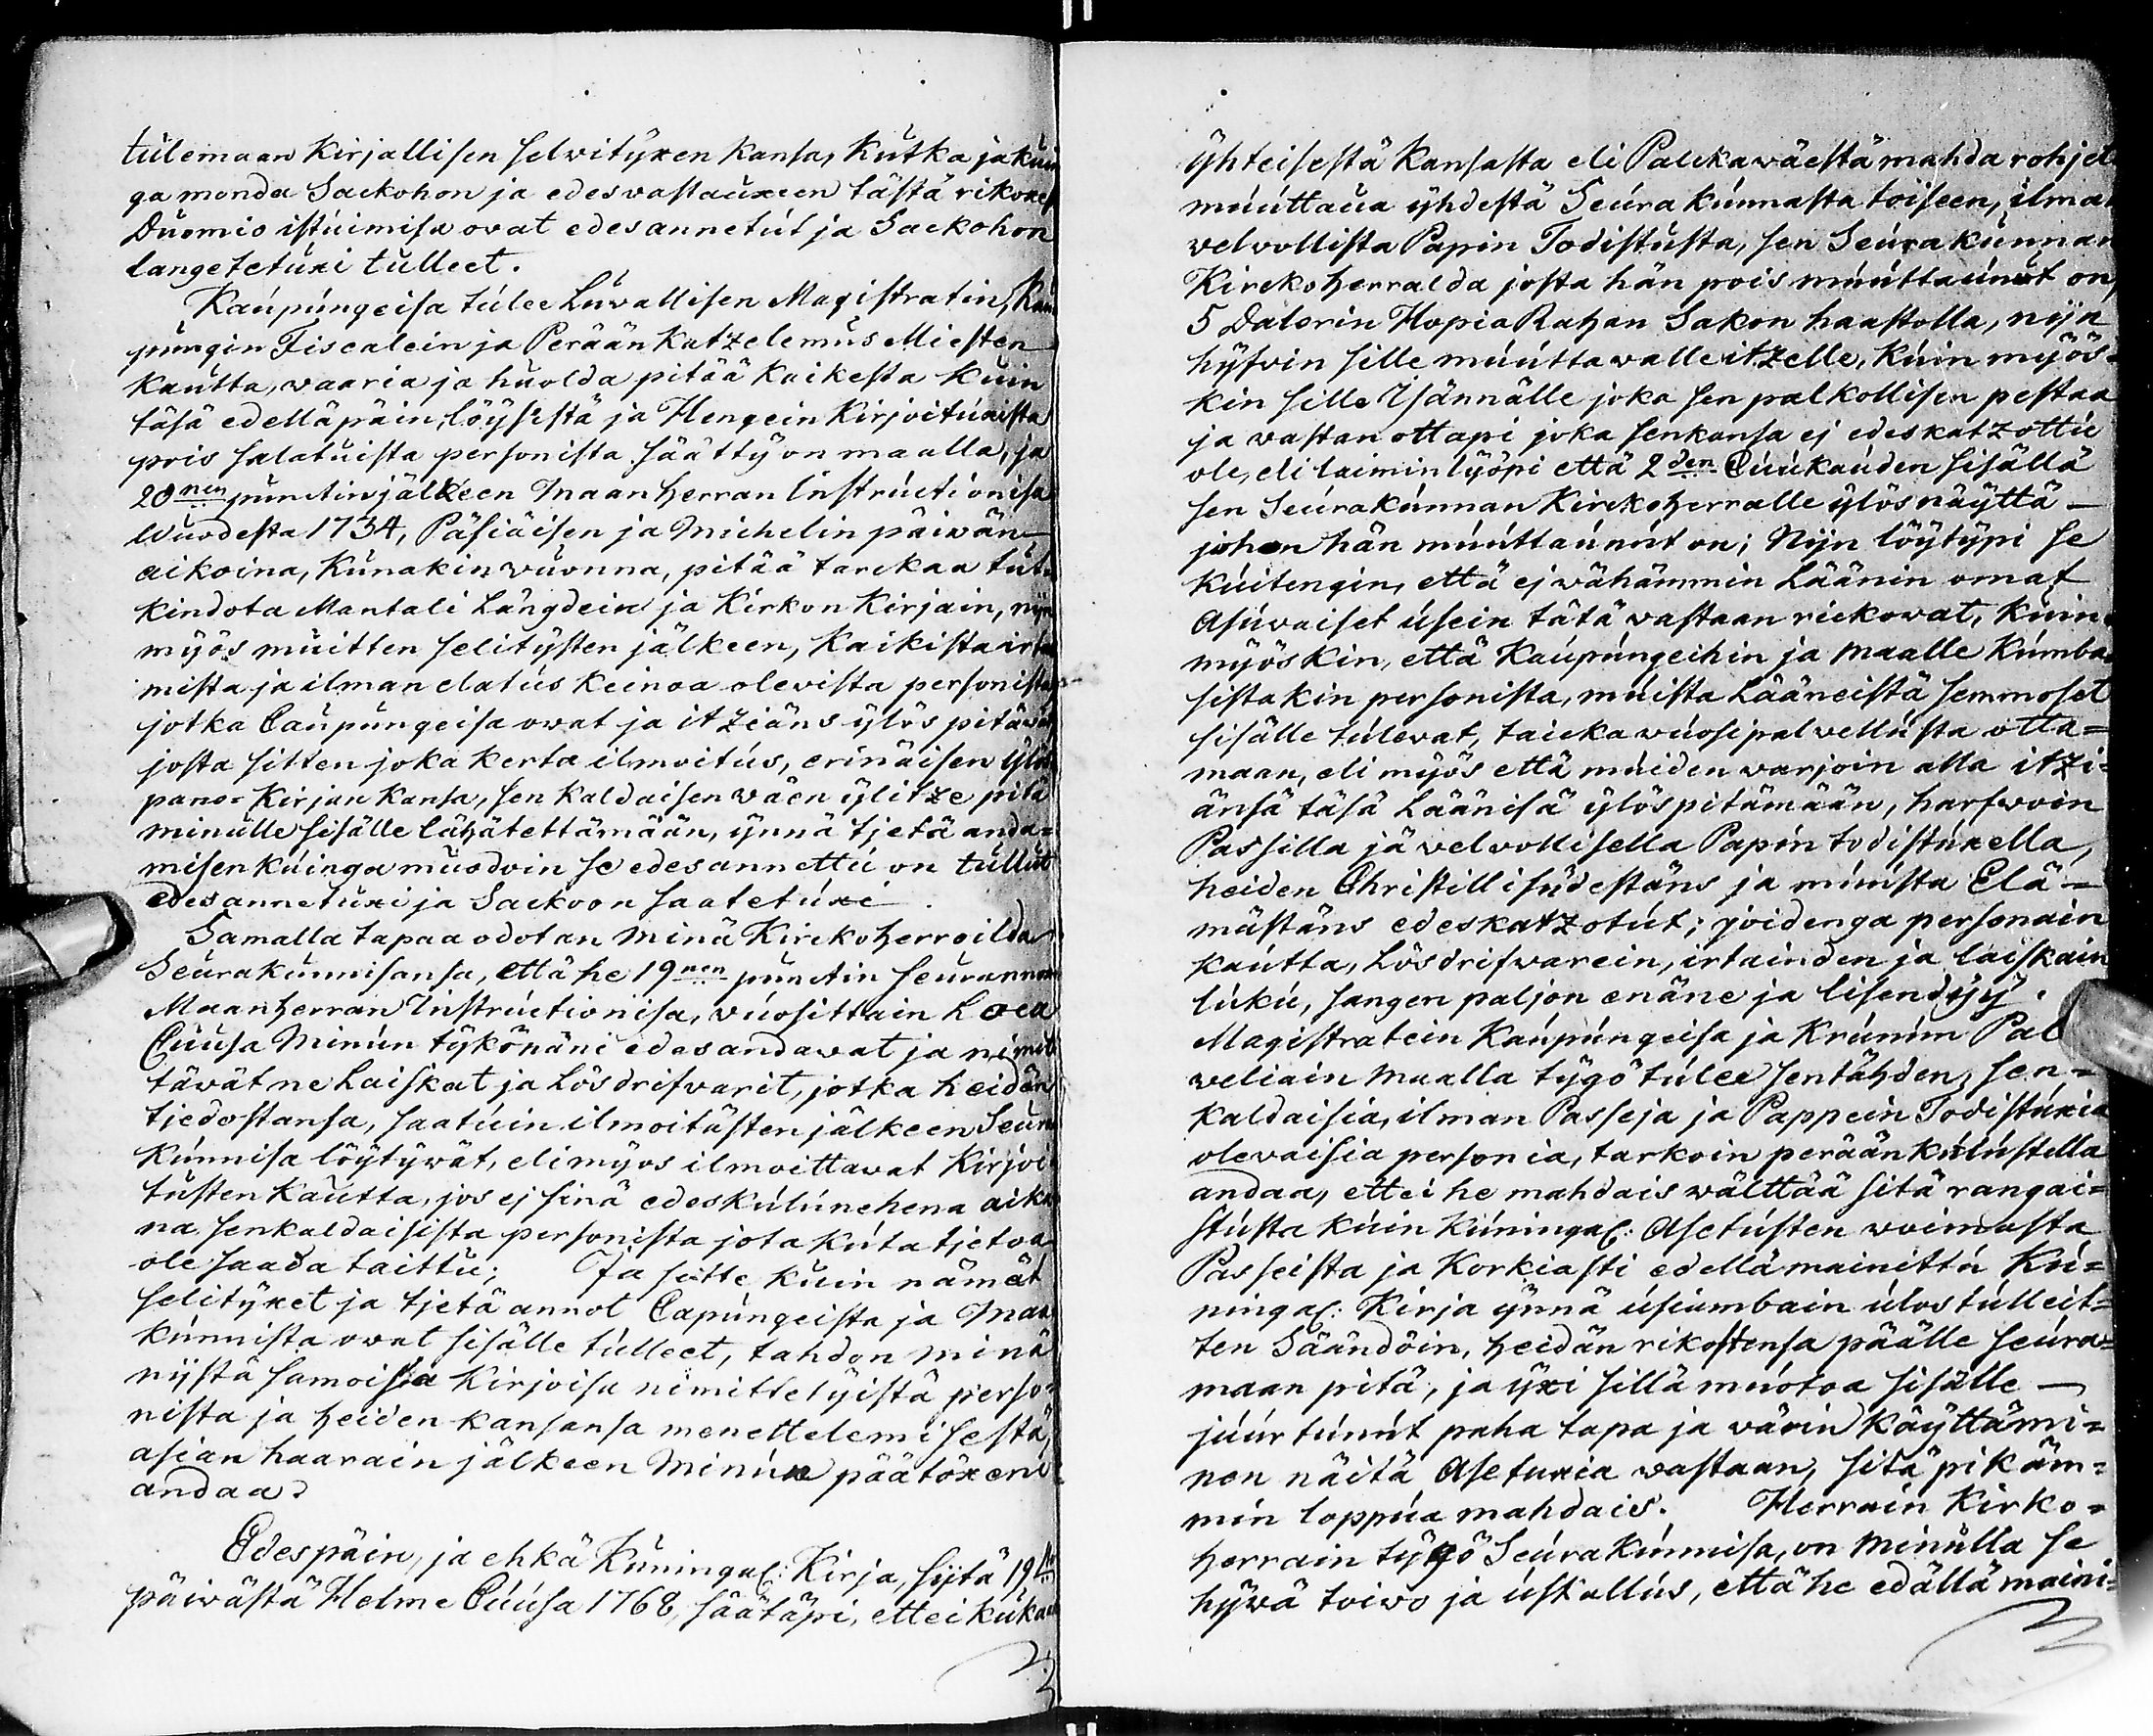 tulemaan Kirjallisen selwityxen kansa, Kutka ja kuin
ga monda Sackohon ja edesvastauxeen tästä rikoxes
Duomio istuimisa ovat edesannetut ja Sackohon
langetetuxi tulleet.
Kaupungeisa tulee Luvallisen Magistratin, Kau
pungin Fiscalein ja Peräänkatzelemus Miesten
kautta, waaria ja huolda pitää kaikesta kuin
täsä edelläpäin, löysistä ja Hengein Kirjoituxista
pois salatuista personista säätty on maalla, ja
20nen punctin jälkeen Maanherran Instructionisa
Wuodesta 1734, Päsiäisen ja Michelin päiwän
aikoina, kunakin wuonna, pitää tarckaa tut-
kindota Mantali Längdein ja Kirkon Kirjain, nijn
myös muitten selitysten jälkeen, Kaikista irta
mista ja ilman elatus keinoa olevista personista
jotka Caupungeisa owat ja itziäns ylös pitäwät,
josta sitten joka kerta ilmoitus, erinäisen ylös
pano-Kirjan kansa, senkaldaisen wäen ylitze pitä
minulle sisälle lähätettämään, ynnä tjetä anda=
misen kuinga muodoin se edesannettu on tullut
edesannetuxi ja Sackoon saatetuxi.
Samalla tapaa odotan minä Kirckoherroilda
Seurakunnisansa, että he 19nen punctin seurannon
Maanherran Instructionisa, vuosittain Loca
Cuusa Minun tykönäni edesandawat ja nimit
täwät ne Laiskat ja Lösdrifvarit, jotka heidän
tjedostansa, saatuin ilmoitusten jälkeen Seura
kunnisa löytywät, eli myos ilmoittavat Kirjoi
tusten kautta, jos ej sinä edeskulunehena aika
na senkaldaisista personista jota kuta tjetoa
ole saada taittu; Ja sitte kuin nämät
selityxet ja tjetä annot Capungeista ja Maa
kunnista owat sisälle tulleet, tahdon minä
nijstä samoisa Kirjoisa nimittetyistä perso-
nista ja heiden kansansa menettelemisestä,
asian haarain jälkeen Minun päätöxeni
andaa.
Edespäin, ja ehkä Kuningal: Kirja, sijtä 19tä
päiwästä Helme Cuusa 1768, säätäpi, ettei kukaan
yhteisestä kansasta eli Palckawäestä mahda rohjet
muuttaua yhdestä Seurakunnasta toiseen, ilman
welvollista Papin Todistusta, sen Seurakunnan
Kirckoherralda josta hän pois muuttaunut on,
5 Dalerin Hopia Rahan Sakon haastolla, nijn
hyfvin sille muuttawalle itzelle, kuin myös-
kin sille Isännälle joka sen palkollisen pestaa
ja vastan ottapi joka senkansa ej edeskatzottu
ole, eli laiminlyöpi että 2den Cuukauden sisällä
sen Seurakunnan Kirckoherralle ylösnäyttä —
johon hän muuttaunut on; Nijn löytypi se
kuitengin, että ej wähämmin Läänin omat
Asuvaiset usein tätä wastaan rickowat, kuin
myöskin, että Kaupungeihin ja maalle kumba-
sistakin personista, muista Lääneistä semmoset
sisälle tulevat, taicka wuosipalwellusta otta=
maan, eli myös että muiden warjoin alla itzi=
änsä täsä Läänisä ylöspitämään, harfwoin
Passilla jä velvollisella Papin todistuxella,
heiden Christillisudestäns ja muusta Elä-
mästäns edeskatzotut; joidenga personain
kautta, Lösdrifvarein, irtainden ja laiskain
luku, sangen paljon enäne ja lisendyy.
Magistratein Kaupungeisa ja Krunun Pal
weliain Maalla tygö tulee sentähden, sen=
kaldaisia, ilman Passeja ja Pappein Todistuxia
olevaisia personia, tarkoin perään kulustella
andaa, ettei he mahdais wälttää sitä rangai=
stusta kuin Kuningal: Asetusten woimasta
Passeista ja Korkiasti edellämainittu Ku=
ningal: Kirja ynnä usiambain ulostulleit=
ten Säändöin, heidän rikostensa päälle seura=
maan pitä, ja yxi sillä muotoa sisälle —
juurtunut paha tapa ja wärin Käyttämi=
nen näitä Asetuxia wastaan, sitä pikäm=
min loppua mahdais. Herrain Kirko=
herrain tygö Seurakunnisa, on Minulla se
hywä toivo ja uskallus, että he edällämaini=